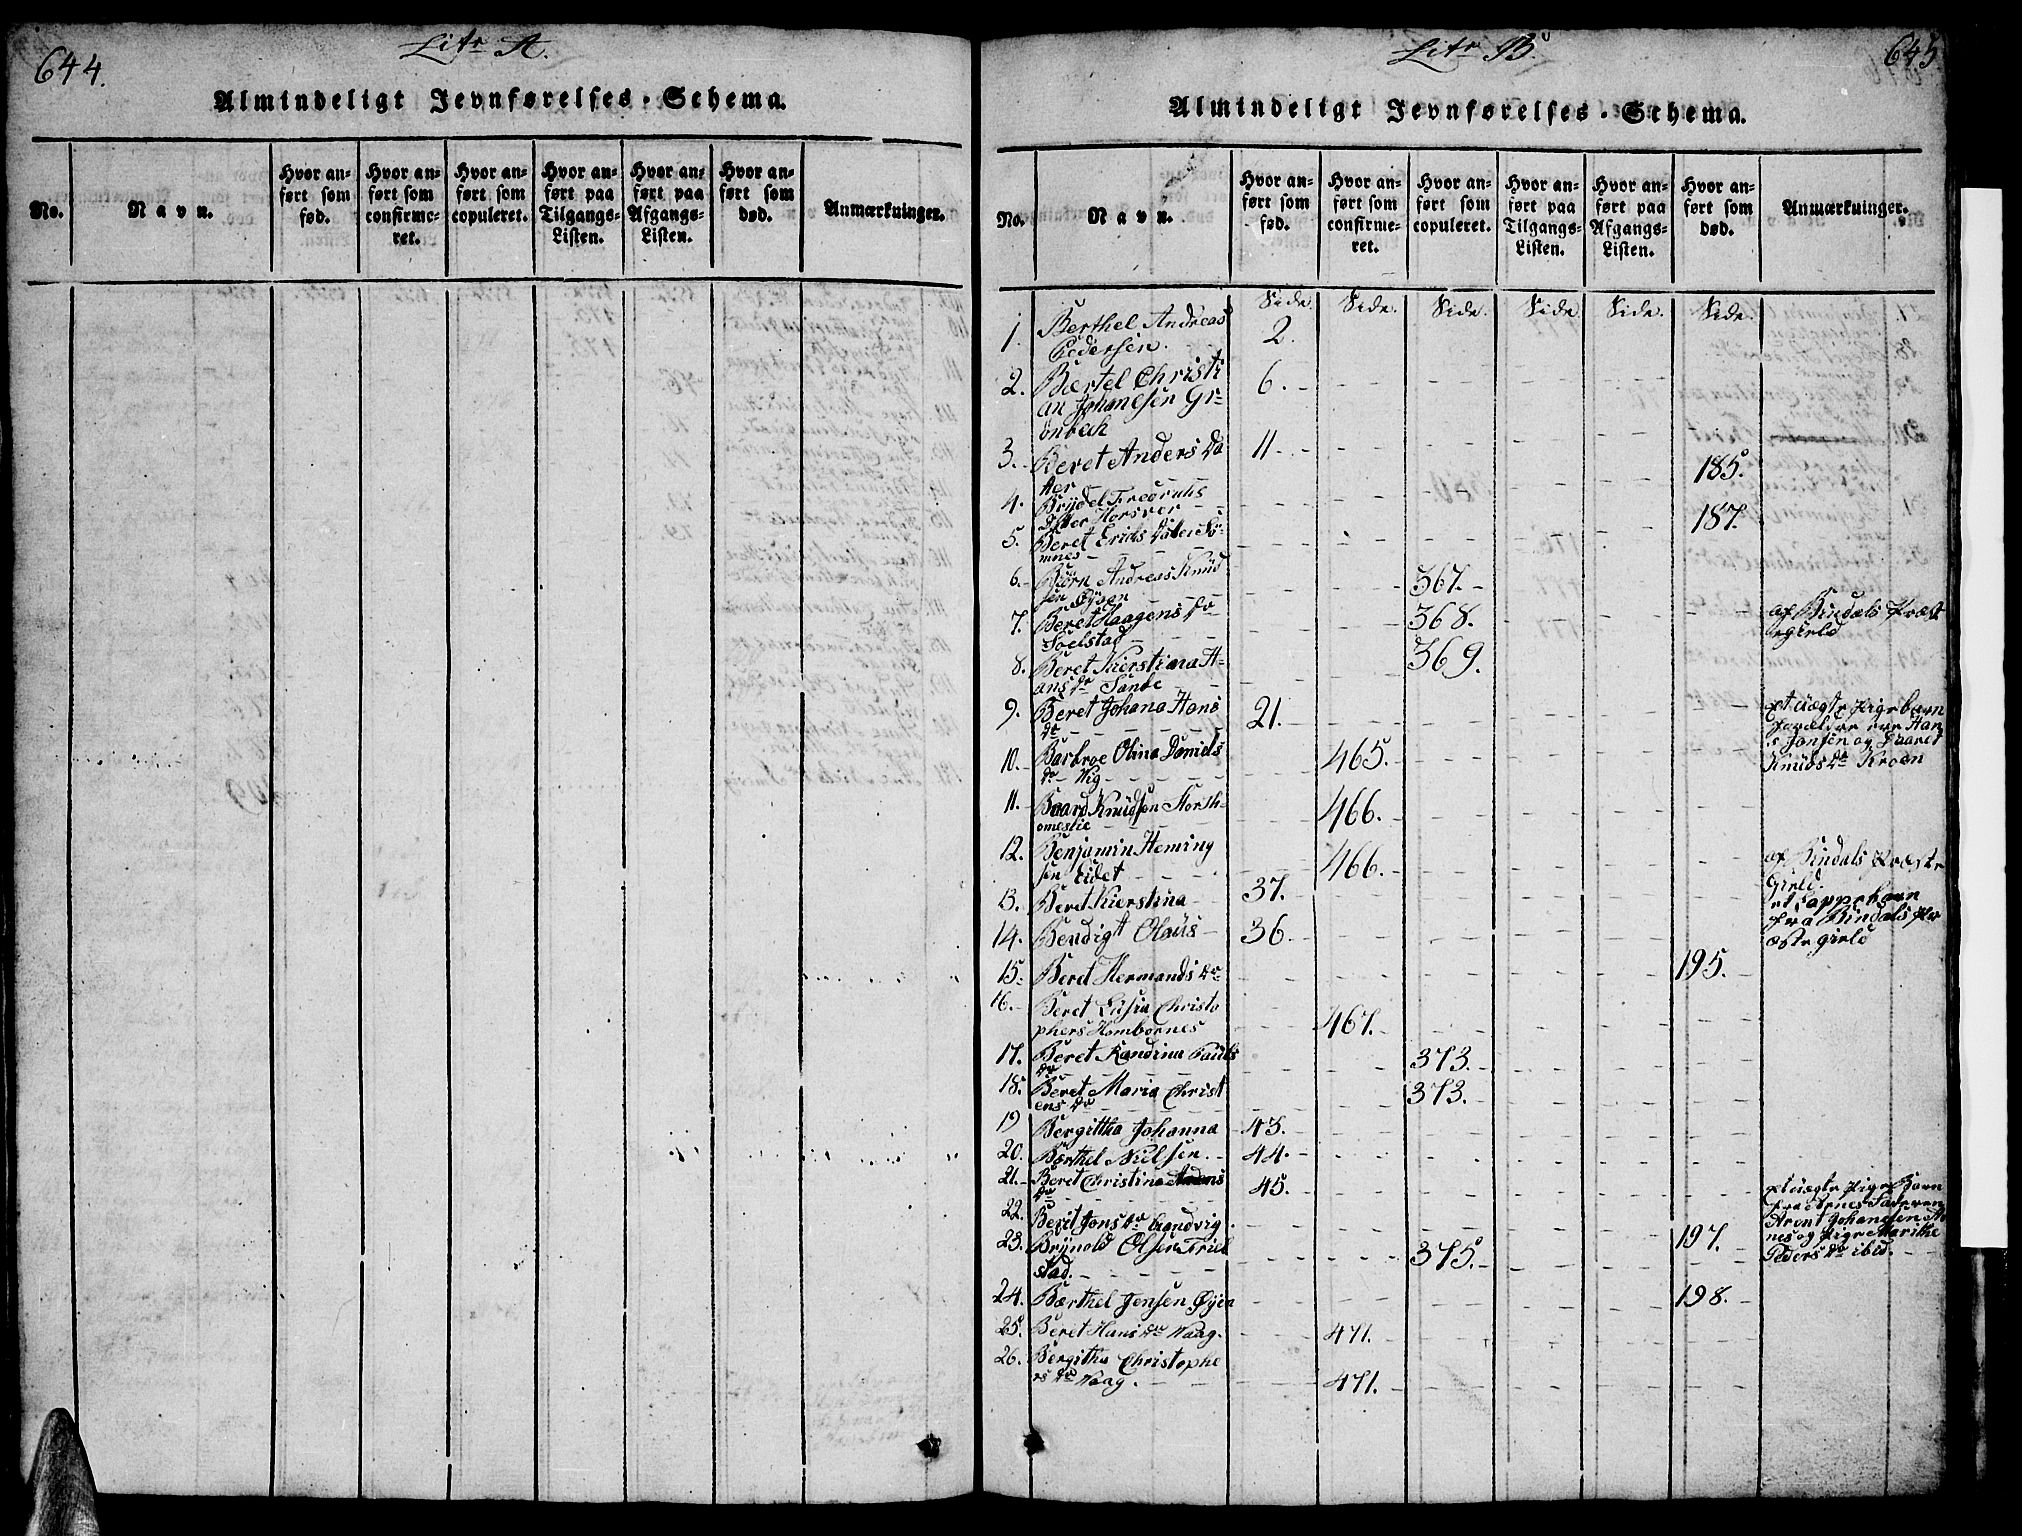 644.
Litr A.
Almindeligt Jevnførelses-Schema.
No.
Navn.
Hvor anført som fød.
Hvor anført som confirmeret.
Hvor anført som copuleret.
Hvor anført paa Tilgangs-Listen.
Hvor anført paa Afgangs-Listen.
Hvor anført som død.
Anmærkninger.
Litr B.
645
Almindeligt Jevnførelses-Schema.
No.
Navn.
Hvor anført som fød.
Hvor anført som confirmeret.
Hvor anført som copuleret.
Hvor anført paa Tilgangs-Listen.
Hvor anført paa Afgangs-Listen.
Hvor anført som død.
Anmærkninger.
Side. Side. Side. Side. Side. Side.
1. Berthel Andreas
Pedersen. 2.
2. Bærtel Christi
an Johnsen Gr-
önbech 6.
3. Beret Anders Da
tter 11. 185.
4. Brydel
Horsver 187.
5. Beret Erichs Dater Sö-
mnes
6. Biörn Andreas Knud
sen Öysen 367.
7. Beret Haagens Dr
Soelstad 368. af Bindals Præst
egield
8. Beret Kierstina H-
ans Dr Sande 369.
9. Beret Johana Hans
Dr 21. et uægte Pigebarn
forældre ere Han
s Jonsen og Maret
Knuds Dr Kroen
10. Barbroe Olina Daniels
Dr Vig 465.
11. Baard Knudsen Horsh-
omestie 466.
12. Benjamin Heming
sen Eidet 466. af Bindals Præste
Gield.
13. Beret Kierstina 37. et Lappebarn
fra Bindals Pr
æstegield
14. Bendigt Olaus 36.
15. Beret Hermands Dr 195.
16. Beret Lusia Christo
phers Hombornes 467.
17. Beret Randina Pauls
Dr 373.
18. Beret Maria Christ
ens Dr 373.
19 Bergittha Johanna 43.
20. Bærthel Nielsen. 44.
21. Beret Christina
Dr 45. et uægte Pige Barn
Aront Johansen
nes og Pige Marithe
Peders Dr ibid.
22. Berit Jons Dr Sandvig. 197.
23. Brynold Olsen Friel
stad. 375.
24. Bærthel Jensen Øyen 198.
25. Beret Hans Dr Vaag. 471.
26. Bergitha Christophe
rs Dr Vaag. 471.